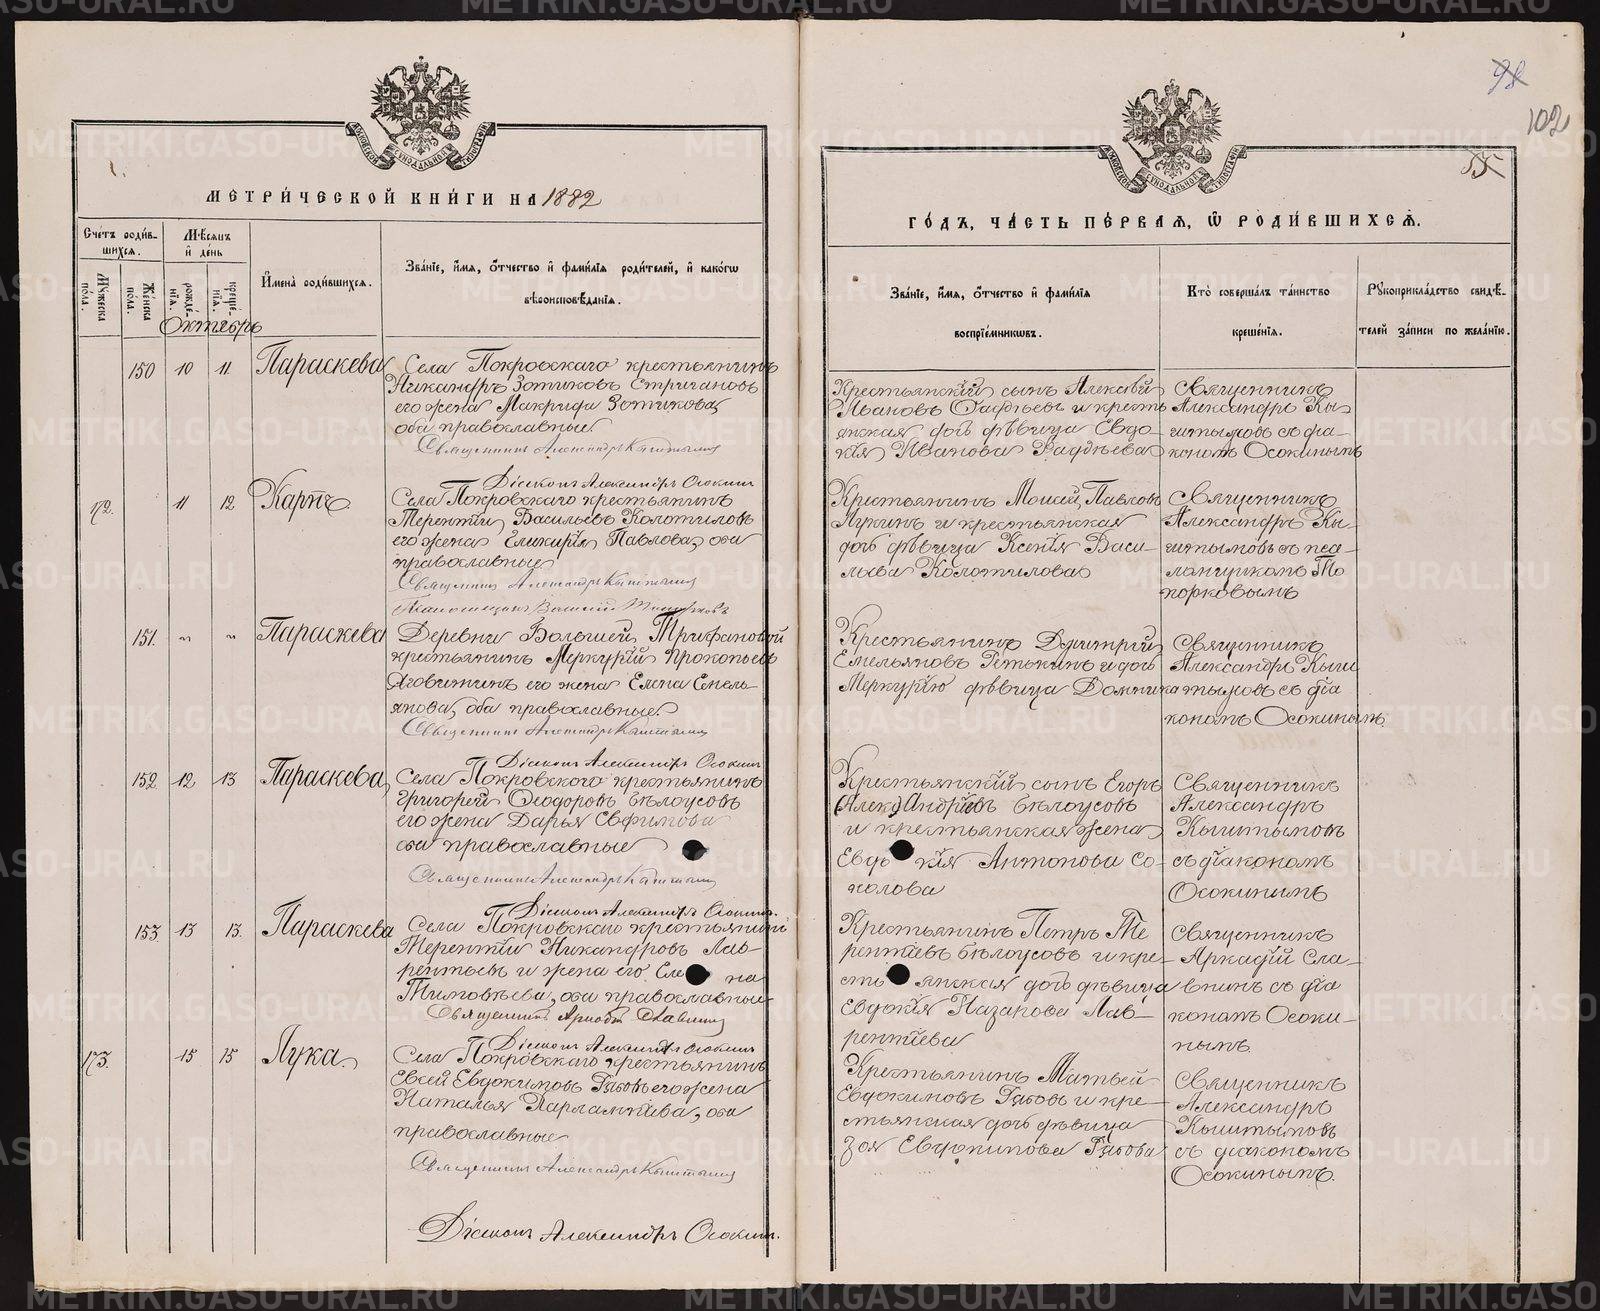 98
102
55
МЕТРИ́ЧЕСКОЙ КНИ́ГИ НА 1882
Сче́тъ роди́в-
шихся.
Мѣ́сяцъ
и҆ де́нь
Му́жеска
по́ла.
Же́нска
по́ла.
рожде́-
нїѧ.
креще́-
нїѧ.
И҆мена̀ роди́вшихся.
Зва́нїе, и҆́мѧ, ѻ҆́тчество и҆ фами́лїѧ роди́телей, и҆ како́гѡ
вѣроисповѣ́данїѧ.
Октябрь
150 10 11 Параскева
Села Покровскаго крестьянинъ
Никандръ Зотиковъ Стригановъ
его жена Макрида Зотикова,
оба православные
Священникъ Александръ Кыштымовъ
Дiаконъ Александръ Осокинъ
172. 11 12 Карпъ
Села Покровскаго крестьянинъ
Терентiй Васильевъ Колотиловъ
его жена Гликирiя Павлова, оба
православные
Священникъ Александръ Кыштымовъ
Псаломщикъ Топорковъ
151. " " Параскева
Деревни Большей Трифановой
крестьянинъ Меркурiй Прокопьевъ
его жена Елена Емель-
янова, оба православные
Священникъ Александръ Кыштымовъ
Дiаконъ Александръ Осокинъ
152. 12 13 Параскева
Села Покровского крестьянинъ
Григорей Ѳеодоровъ Бѣлоусовъ
его жена Дарья Евфимова
оба православные
Священникъ Александръ Кыштымовъ
Дiаконъ Александръ Осокинъ.
153. 13 13. Параскева
Села Покровскаго крестьянинъ
Терентiй Никандровъ Лав-
рентьевъ и жена его Еле на
Тимовѣева, оба православные
Священникъ Аркадiй Славнинъ
Дiаконъ Александръ Осокинъ
173. 15 15 Лука.
Села Покровскаго крестьянинъ
Евсей Евдокимовъ Глѣбовъ его жена
Наталья Харлампiева, оба
православные
Священникъ Александръ Кыштымовъ
Дiаконъ Александръ Осокинъ.
ГО́ДЪ, ЧА́СТЬ ПЕ́РВАЯ, Ѡ҆ РОДИ́ВШИХСЯ.
Зва́нїе, и҆́мѧ, ѻ҆́тчество и҆ фами́лїѧ
воспрїе́мникѡвъ.
Кто̀ соверша́лъ та́инство
креще́нїѧ.
Рꙋкоприкла́дство свидѣ́-
телей за́писи по жела́нїю.
Крестьянскiй сынъ Алексѣй
Ивановъ Фадѣевъ и кресть
янская дочь дѣвица Евдо-
кiя Иванова Фадѣева
Священникъ
Александръ Кы-
штымовъ съ дiа-
кономъ Осокинымъ
Крестьянинъ Моисей Павловъ
Лукинъ и крестьянская
дочь дѣвица Ксенiя Васи-
льева Колотилова
Священникъ
Александръ Кы-
штымовъ съ пса-
ломщикомъ То
порковымъ
Крестьянинъ Дмитрiй
Емельяновъ и дочь
Меркурiю дѣвица Домника
Священникъ
Александръ Кыш
тымовъ съ дiа
кономъ Осокинымъ
Крестьянскiй сынъ Егоръ
(Алек) Андрiевъ Бѣлоусовъ
и крестьянская жена
Евдо кiя Антонова Со-
колова
Священникъ
Александръ
Кыштымовъ
съ дiакономъ
Осокинымъ
Крестьянинъ Петръ Те
рентiевъ Бѣлоусовъ и кре-
сть янская дочь дѣвица
Евдокiя Назарова Лав-
рентiева
Священникъ
Аркадiй Сла-
внинъ съ дiа
кономъ Осоки-
нымъ.
Крестьянинъ Матвей
Евдокимовъ Глѣбовъ и кре-
стьянская дочь дѣвица
Зоя Евдокимова Глѣбова
Священникъ
Александръ
Кыштымовъ
съ дiакономъ
Осокинымъ.
METRIKI.GASO-URAL.RU